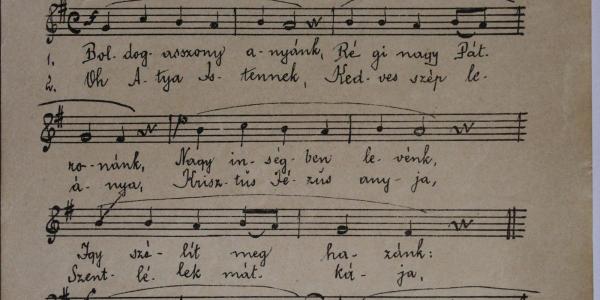 1. Bol- dog- asszony a- nyánk, Ré gi nagy Pát-
2. Oh A- tya Is- tennek, Ked- ves szép le-
ro- nánk, Nagy in- ség- ben le- vénk,
á- nya, Krisz- tus Jé- zus any- ja,
Igy szó- lít meg ha- zánk:
Szent- lé- lek mát- ká- ja,